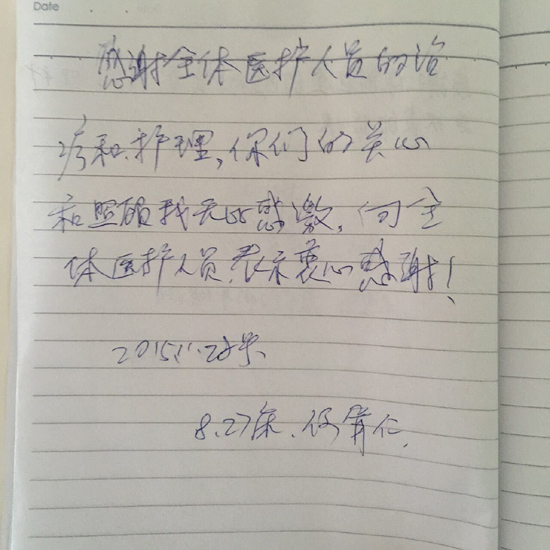 Date
感谢全体医护人员的治
疗和护理,你们的关心
和照顾我无比感激,向全
体医护人员表示衷心感谢!
2015.11.2
8.27床.何